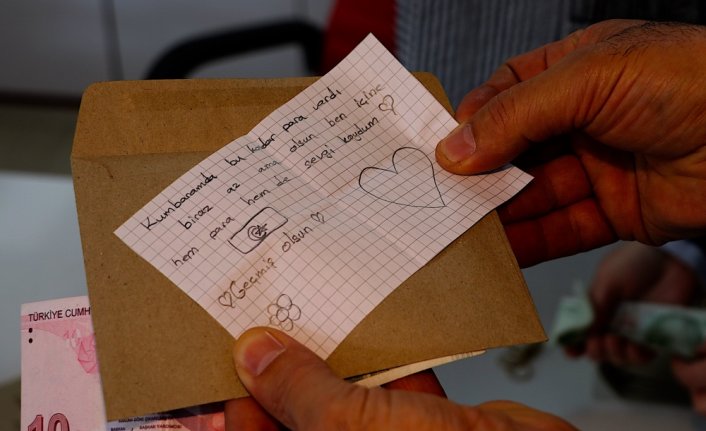 Kumbaramda bu kadar para vardı
biraz az ama olsun ben içine
hem para hem de sevgi koydum
Geçmiş olsun
TÜRKİYE CUMH
10